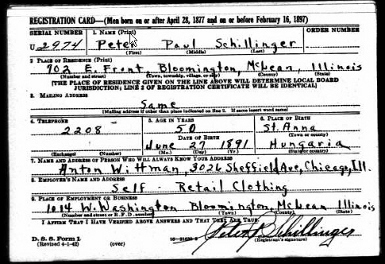 REGISTRATION CARD—(Men born on or after April 28, 1877 and on or before February 16, 1897)
SERIAL NUMBER 1. NAME (Print) ORDER NUMBER
U 2974 Peter Paul Schillinger
(First) (Middle) (Last)
2. PLACE OF RESIDENCE (Print)
902 E. Front, Bloomington McLean, Illinois
(Number and street) (Town, township, village, or city) (County) (State)
[THE PLACE OF RESIDENCE GIVEN ON THE LINE ABOVE WILL DETERMINE LOCAL BOARD
JURISDICTION; LINE 2 OF REGISTRATION CERTIFICATE WILL BE IDENTICAL]
3. MAILING ADDRESS
Same
(Mailing address if other than place indicated on line 2. If same insert word same)
4. TELEPHONE 5. AGE IN YEARS 6. PLACE OF BIRTH
2208 50 St. Anna
DATE OF BIRTH (Town or county)
June 27 1891 Hungaria
(Exchange) (Number) (Mo.) (Day) (Yr.) (State or country)
7. NAME AND ADDRESS OF PERSON WHO WILL ALWAYS KNOW YOUR ADDRESS
Anton Wittman, 3026 Sheffield Ave, Chicago, Ill.
8. EMPLOYER'S NAME AND ADDRESS
Self - Retail Clothing
9. PLACE OF EMPLOYMENT OR BUSINESS
1014 W. Washington Bloomington, McLean Illinois
(Number and street or R. F. D. number) (Town) (County) (State)
I AFFIRM THAT I HAVE VERIFIED ABOVE ANSWERS AND THAT THEY ARE TRUE.
D. S. S. Form 1
(Revised 4-1-42) (over) (Registrant's signature)
Peter P. Schillinger